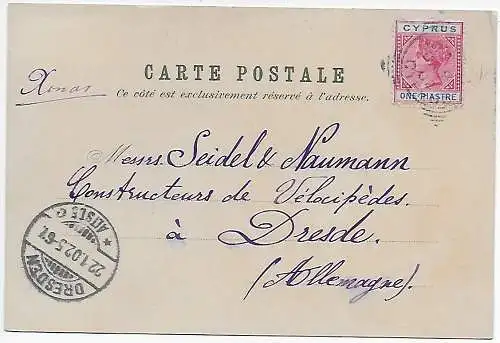 CYPRUS
ONE PIASTRE
Xmas
CARTE POSTALE
Ce côté est exclusivement réservé à l'adresse.
Messrs. Seidel & Naumann
Constructeurs de Vélocipèdes.
à Dresde.
(Allemagne).
DRESDEN
22.1.02.5-6N.